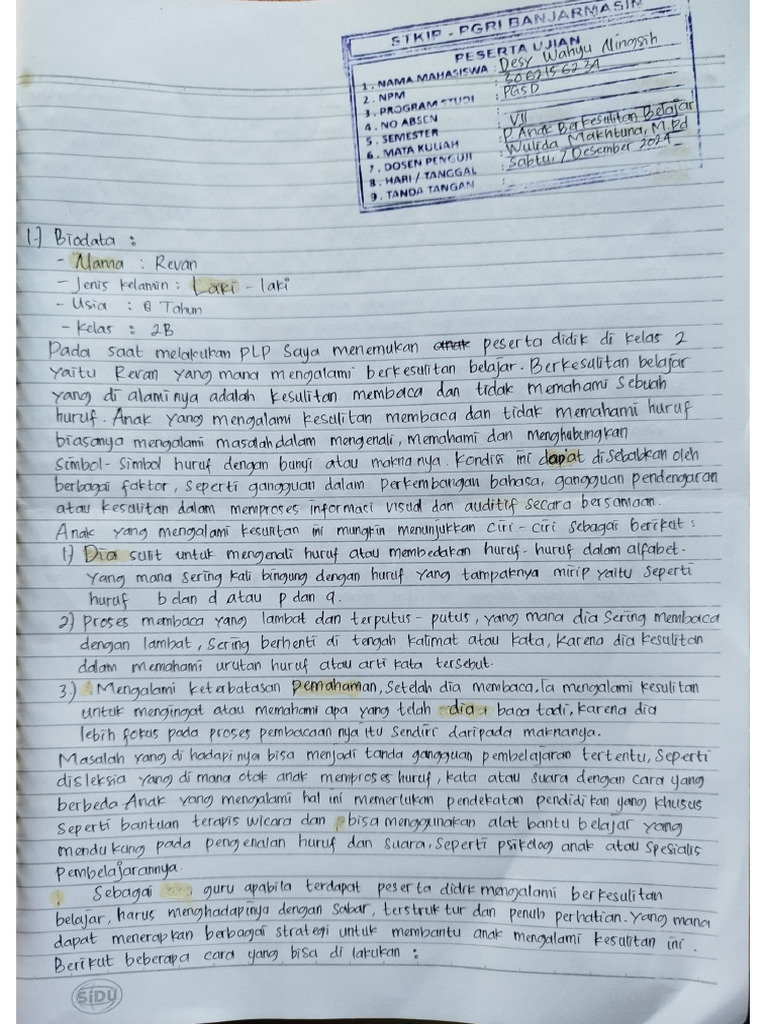 STKIP - PGRI BANJARMASIN
PESERTA UJIAN
1. NAMA MAHASISWA : Desy Wahyu Ningsih
2. NPM : 3062156234
3. PROGRAM STUDI : PGSD
4. NO ABSEN :
5. SEMESTER : VII
6. MATA KULIAH : P. Anak Berkesulitan Belajar
7. DOSEN PENGUJI : Wulida Makhtuna, M.Pd
8. HARI / TANGGAL : Sabtu, 7 Desember 2024
9. TANDA TANGAN :
1.) Biodata :
- Nama : Revan
- Jenis kelamin : Laki - laki
- Usia : 8 Tahun
- Kelas : 2B
Pada saat melakukan PLP saya menemukan anak peserta didik di kelas 2
yaitu Revan yang mana mengalami berkesulitan belajar. Berkesulitan belajar
yang di alaminya adalah kesulitan membaca dan tidak memahami sebuah
huruf. Anak yang mengalami kesulitan membaca dan tidak memahami huruf
biasanya mengalami masalah dalam mengenali, memahami dan menghubungkan
simbol-simbol huruf dengan bunyi atau maknanya. Kondisi ini dapat disebabkan oleh
berbagai faktor, seperti gangguan dalam perkembangan bahasa, gangguan pendengaran
atau kesulitan dalam memproses informasi visud dan auditif secara bersamaan.
Anak yang mengalami kesulitan ini mungkin menunjukkan ciri-ciri sebagai berikut :
1) Dia sulit untuk mengenali huruf atau membedakan huruf-huruf dalam alfabet.
Yang mana sering kali bingung dengan huruf yang tampaknya mirip yaitu seperti
huruf b dan d atau p dan q.
2) Proses membaca yang lambat dan terputus-putus, yang mana dia sering membaca
dengan lambat, sering berhenti di tengah kalimat atau kata, karena dia kesulitan
dalam memahami urutan huruf atau arti kata tersebut.
3.) Mengalami keterbatasan pemahaman, setelah dia membaca, Ia mengalami kesulitan
untuk mengingat atau memahami apa yang telah dia baca tadi, karena dia
lebih fokus pada proses pembacaannya itu sendiri daripada maknanya.
Masalah yang di hadapinya bisa menjadi tanda gangguan pembelajaran tertentu, seperti
disleksia yang di mana otak anak memproses huruf, kata atau suara dengan cara yang
berbeda. Anak yang mengalami hal ini memerlukan pendekatan pendidikan yang khusus
seperti bantuan terapis wicara dan bisa menggunakan alat bantu belajar yang
mendukung pada pengenalan huruf dan suara, seperti psikolog anak atau spesialis
pembelajarannya.
Sebagai guru apabila terdapat peserta didik mengalami berkesulitan
belajar, harus menghadapinya dengan sabar, terstruktur dan penuh perhatian. Yang mana
dapat menerapkan berbagai strategi untuk membantu anak mengalami kesulitan ini.
Berikut beberapa cara yang bisa di lakukan :
SIDU